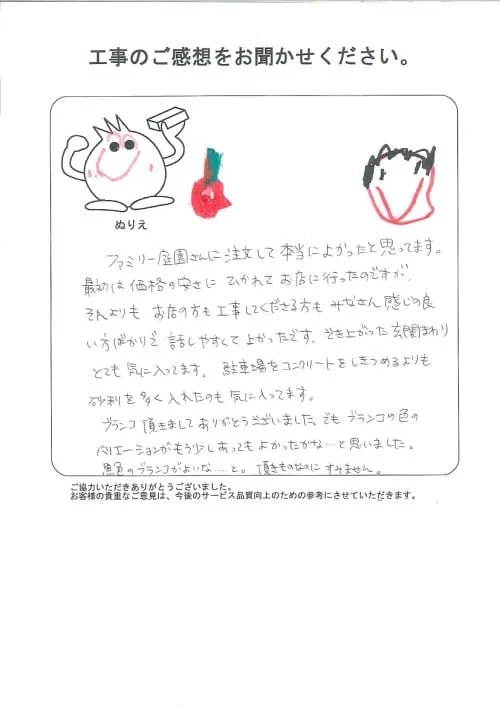 工事のご感想をお聞かせください。
ぬりえ
ファミリー庭園さんに注文して本当によかったと思ってます。
最初は価格の安さにひかれてお店に行ったのですが、
それよりもお店の方も工事してくださる方もみなさん感じの良
い方ばかりで話しやすくてよかったです。でき上がった玄関まわり
とても気に入ってます。駐車場をコンクリートをしきつめるよりも
砂利を多く入れたのも気に入ってます。
ブランコ頂きましてありがとうございました。でもブランコの色の
バリエーションがもう少しあってもよかったかな…と思いました。
黒色のブランコがよいな……と。頂きものなのにすみません。
ご協力いただきありがとうございました。
お客様の貴重なご意見は、今後のサービス品質向上のための参考にさせていただきます。